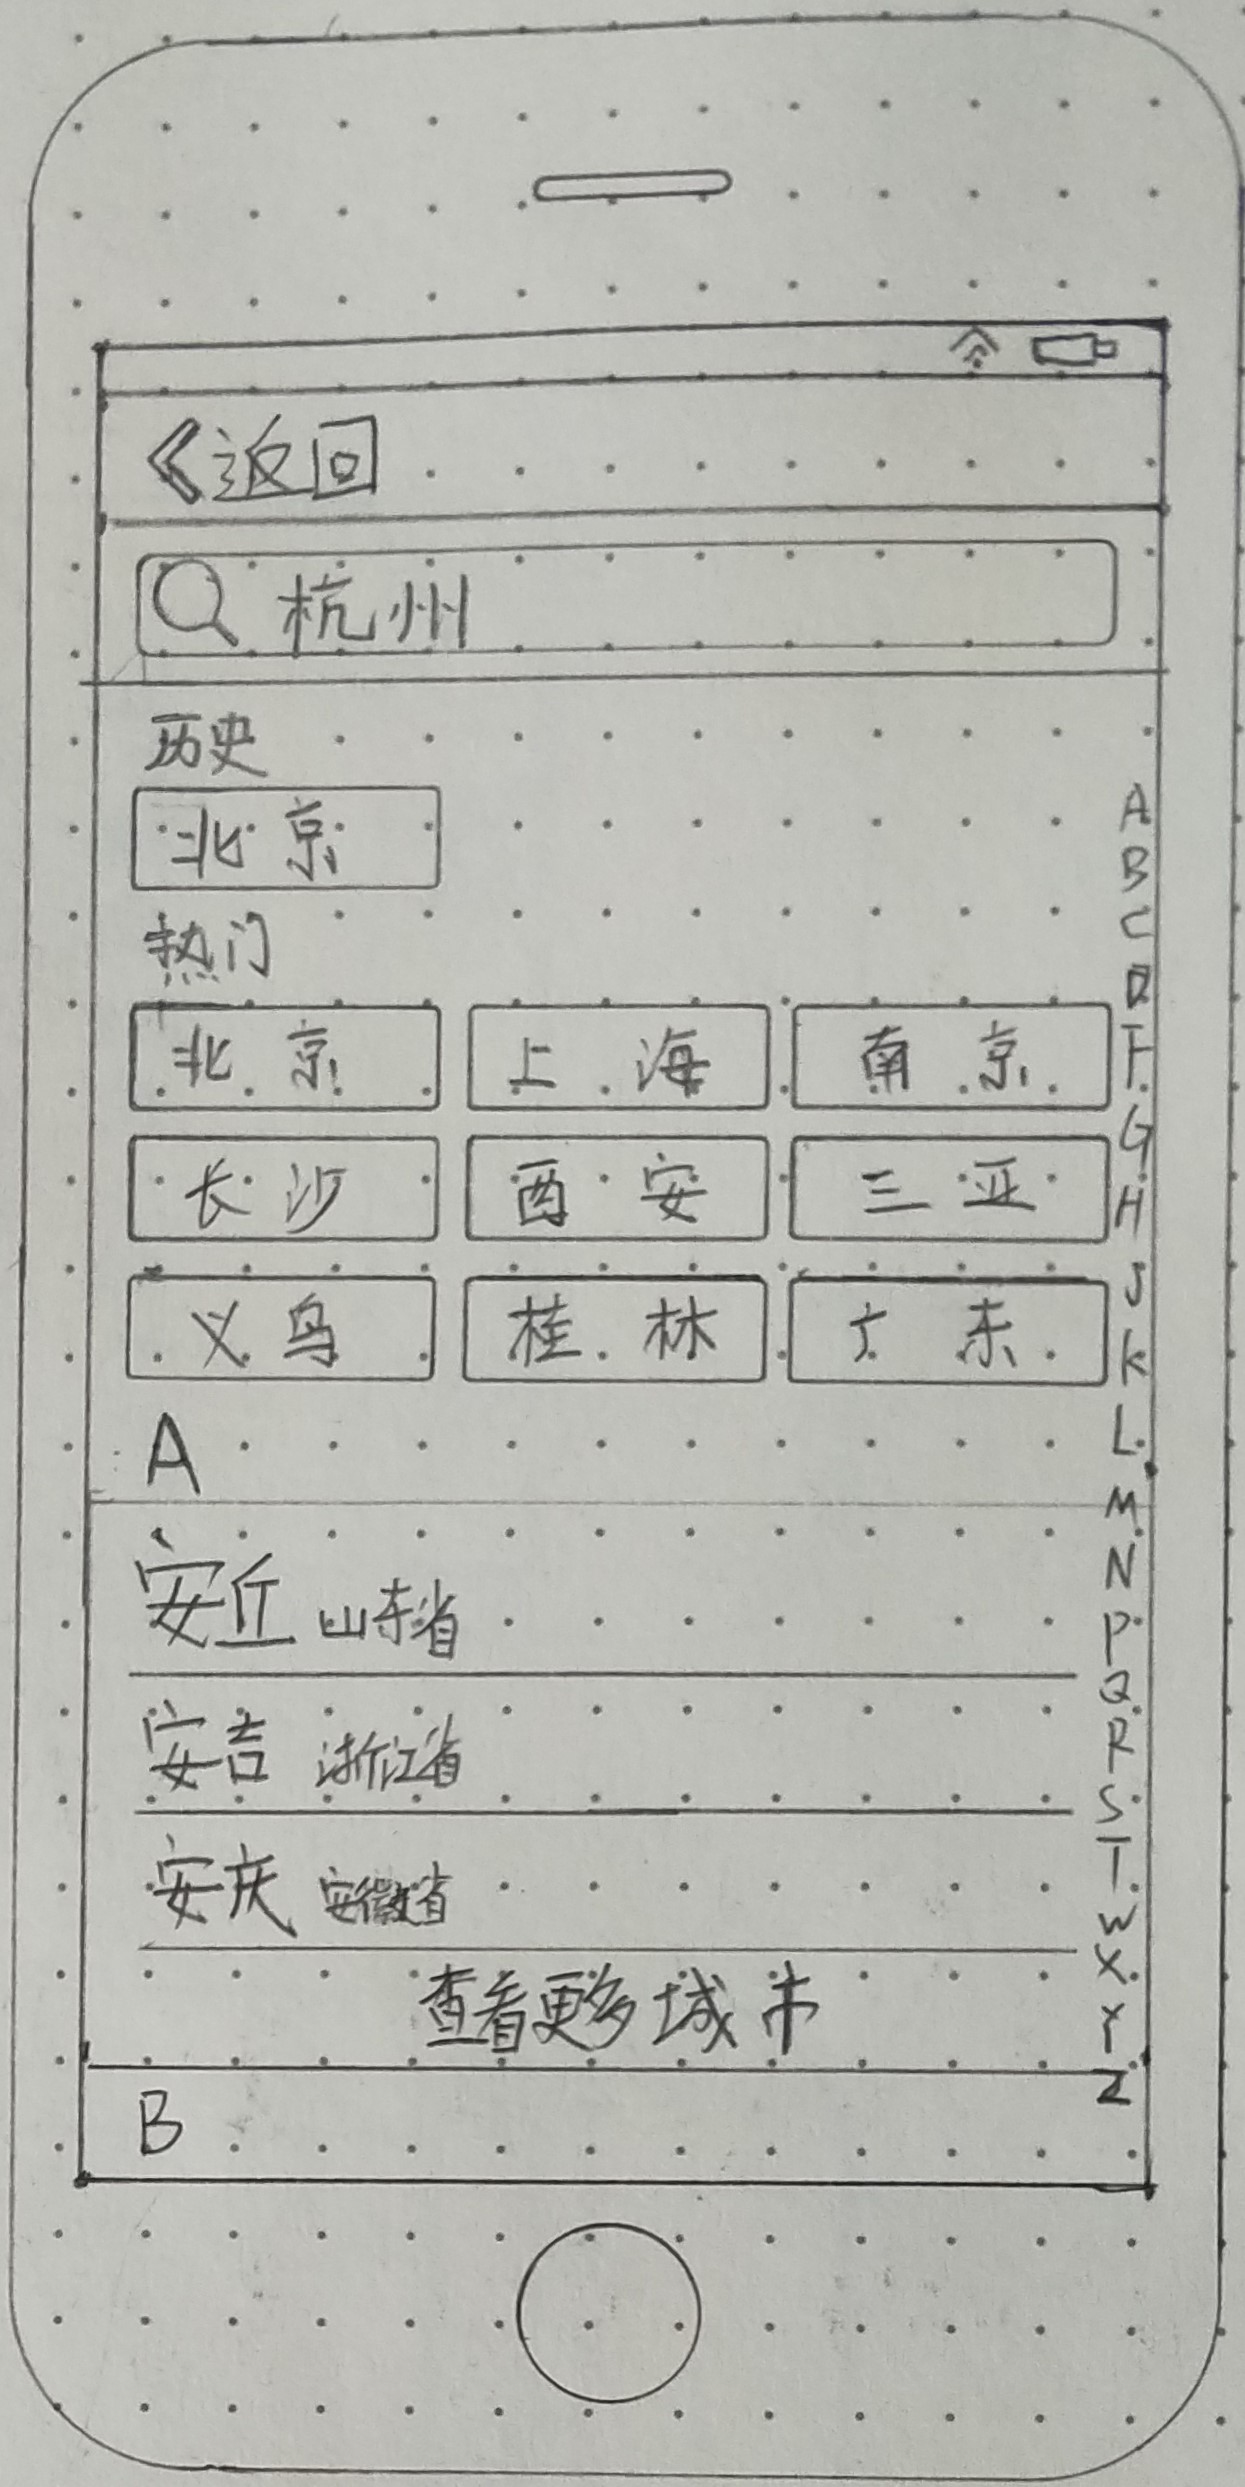 《返回
杭州
历史
北京
热门
北京 上海 南京
长沙 西安 三亚
义乌 桂林 广东
A
安丘 山东省
安吉 浙江省
安庆 安徽省
查看更多城市
B
A
B
C
D
F
G
H
J
K
L
M
N
P
Q
R
S
T
W
X
Y
Z